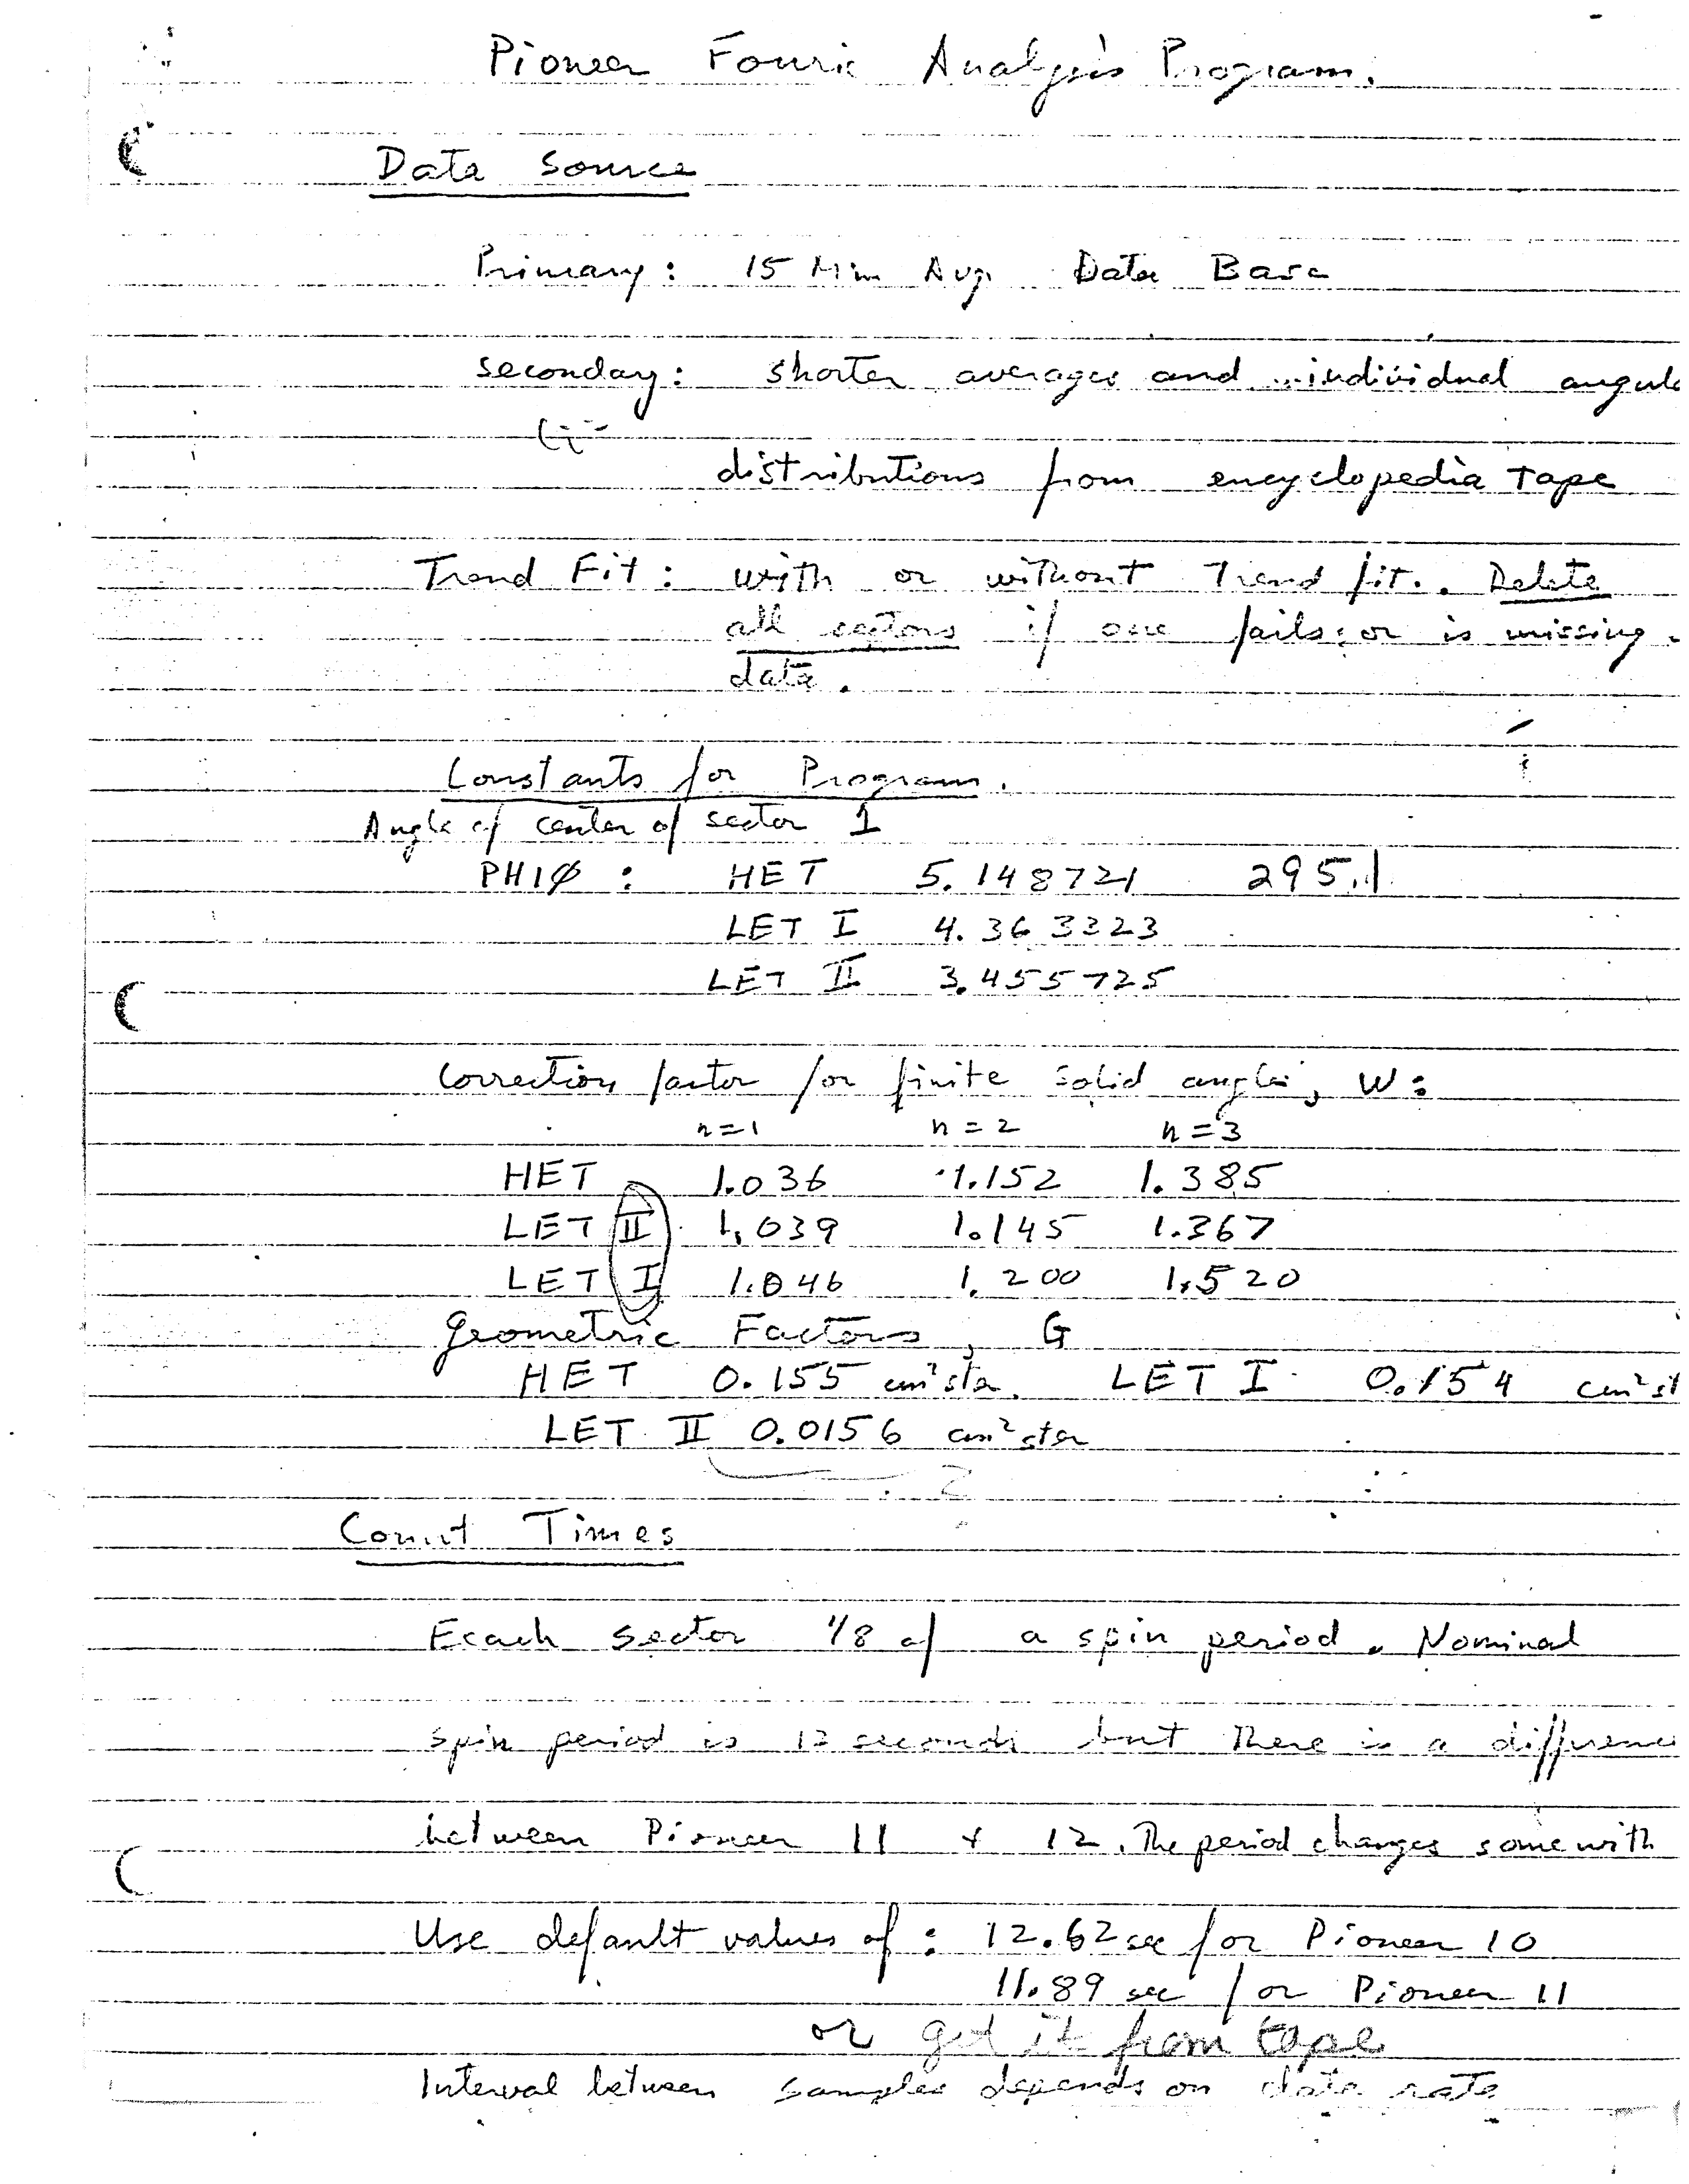 Pioneer Fourier Analysis Program.
Data Source
Primary: 15 Min Avg. Data Base
secondary: shorter averages and individual angula
distributions from encyclopedia Tape
Trend Fit: with or without Trend fit. Delete
all sectors if one fails or is missing
data.
Constants for Program.
Angle of center of sector 1
PHIØ: HET 5.148721 295.1
LET I 4.363323
LET II 3.455725
Correction factor for finite solid angle, W:
n=1 n=2 n=3
HET 1.036 1.152 1.385
LET II 1.039 1.145 1.367
LET I 1.046 1.200 1.520
Geometric Factors, G
HET 0.155 cm²ster. LET I 0.154 cm²st
LET II 0.0156 cm²ster
?
Count Times
Ecach sector 1/8 of a spin period. Nominal
spin period is 12 seconds but there is a difference
between Pioneer 11 + 12. The period changes some with
Use default values of: 12.62 sec for Pioneer 10
11.89 sec for Pioneer 11
or get it from tape
Interval between samples depends on data rate